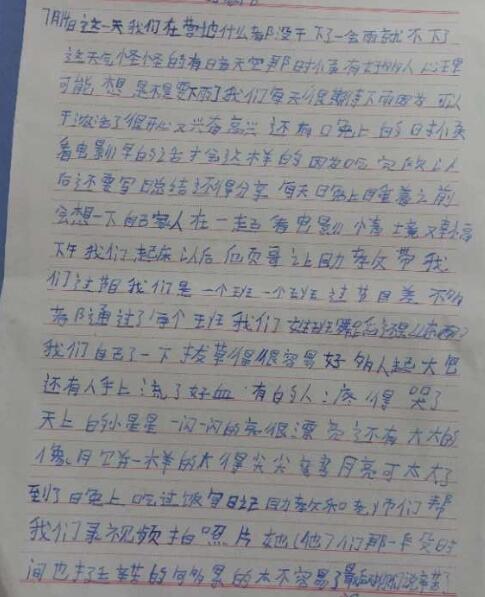 7月14日这一天我们在营地什么都没干下了一会雨就不下了
这天气怪怪的有时天空那时候有好多人心里
可能想是不是要下雨了我们每天很期待下雨因为可以
干农活了很开心又兴奋高兴还有晚上的时候
看电影早的话才会这样的因为吃完饭以
后还要写日总结还得分享每天晚上睡着之前
会想一下自己家人在一起看电影
下午我们起床以后 助教带我
们过节目我们是一个班一个班过节目差不多
都通过了每个班我们
我们自己了一下拔草得很容易好多人起大包
还有人手上流了好血有的人疼得哭了
天上的小星星一闪一闪的亮很漂亮还有大大的
像月饼一样的大得尖尖弯弯月亮可太大了
到了晚上吃过饭写日记助教和老师们帮
我们录视频拍照片她(他)们那一段时
间也挺辛苦的